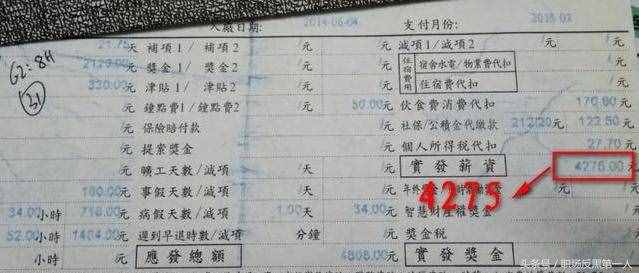 入廠日期: 2014-06-04 支付月份: 2015-03
21.75天 補項1/ 補項2 /元 減項1/減項2 / /元
2120.00元 獎金1/ 獎金2 /元 住宿費用 宿舍水電/物業費代扣 / /元
330.00元 津貼1/ 津貼2 /元 住宿費代扣 /元
G2:8H
31
/元 鐘點費1/鐘點費2 /元 50.00元 伙食費消費代扣 170.80元
/元 保險賠付款 /元 社保/公積金代繳款 122.50元
/元 提案獎金 /元 個人所得稅代扣 27.70元
/元 曠工天數/減項 /天 /元 實發薪資 4275.00元
100.00元 事假天數/減項 /天 /元 /元
4275
34.00小時 元 病假天數/減項 1.00天 34.00元 智慧財產權獎金 /元
52.00小時 元 遲到早退時數/減項 分鐘 /元 獎金稅 /元
小時 /元 應發總額 元 實發獎金
头条号 / 职场反黑第一人